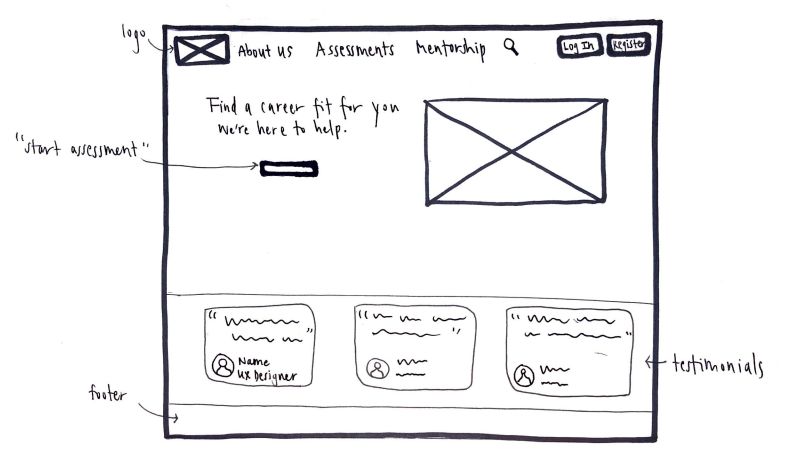 logo
About us
Assessments
Mentorship
Log In
Register
Find a career fit for you
we're here to help.
"start assessment"
Name
UX Designer
testimonials
footer